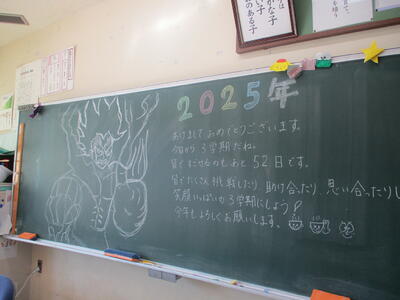 2025年
あけまして おめでとうございます。
今日から 3学期だね。
皆ですごせるのも あと 52日です。
皆でたくさん 挑戦したり、助け合ったり、思い合ったりし
笑顔いっぱいの 3学期にしよう!
今年も よろしくお願いします。